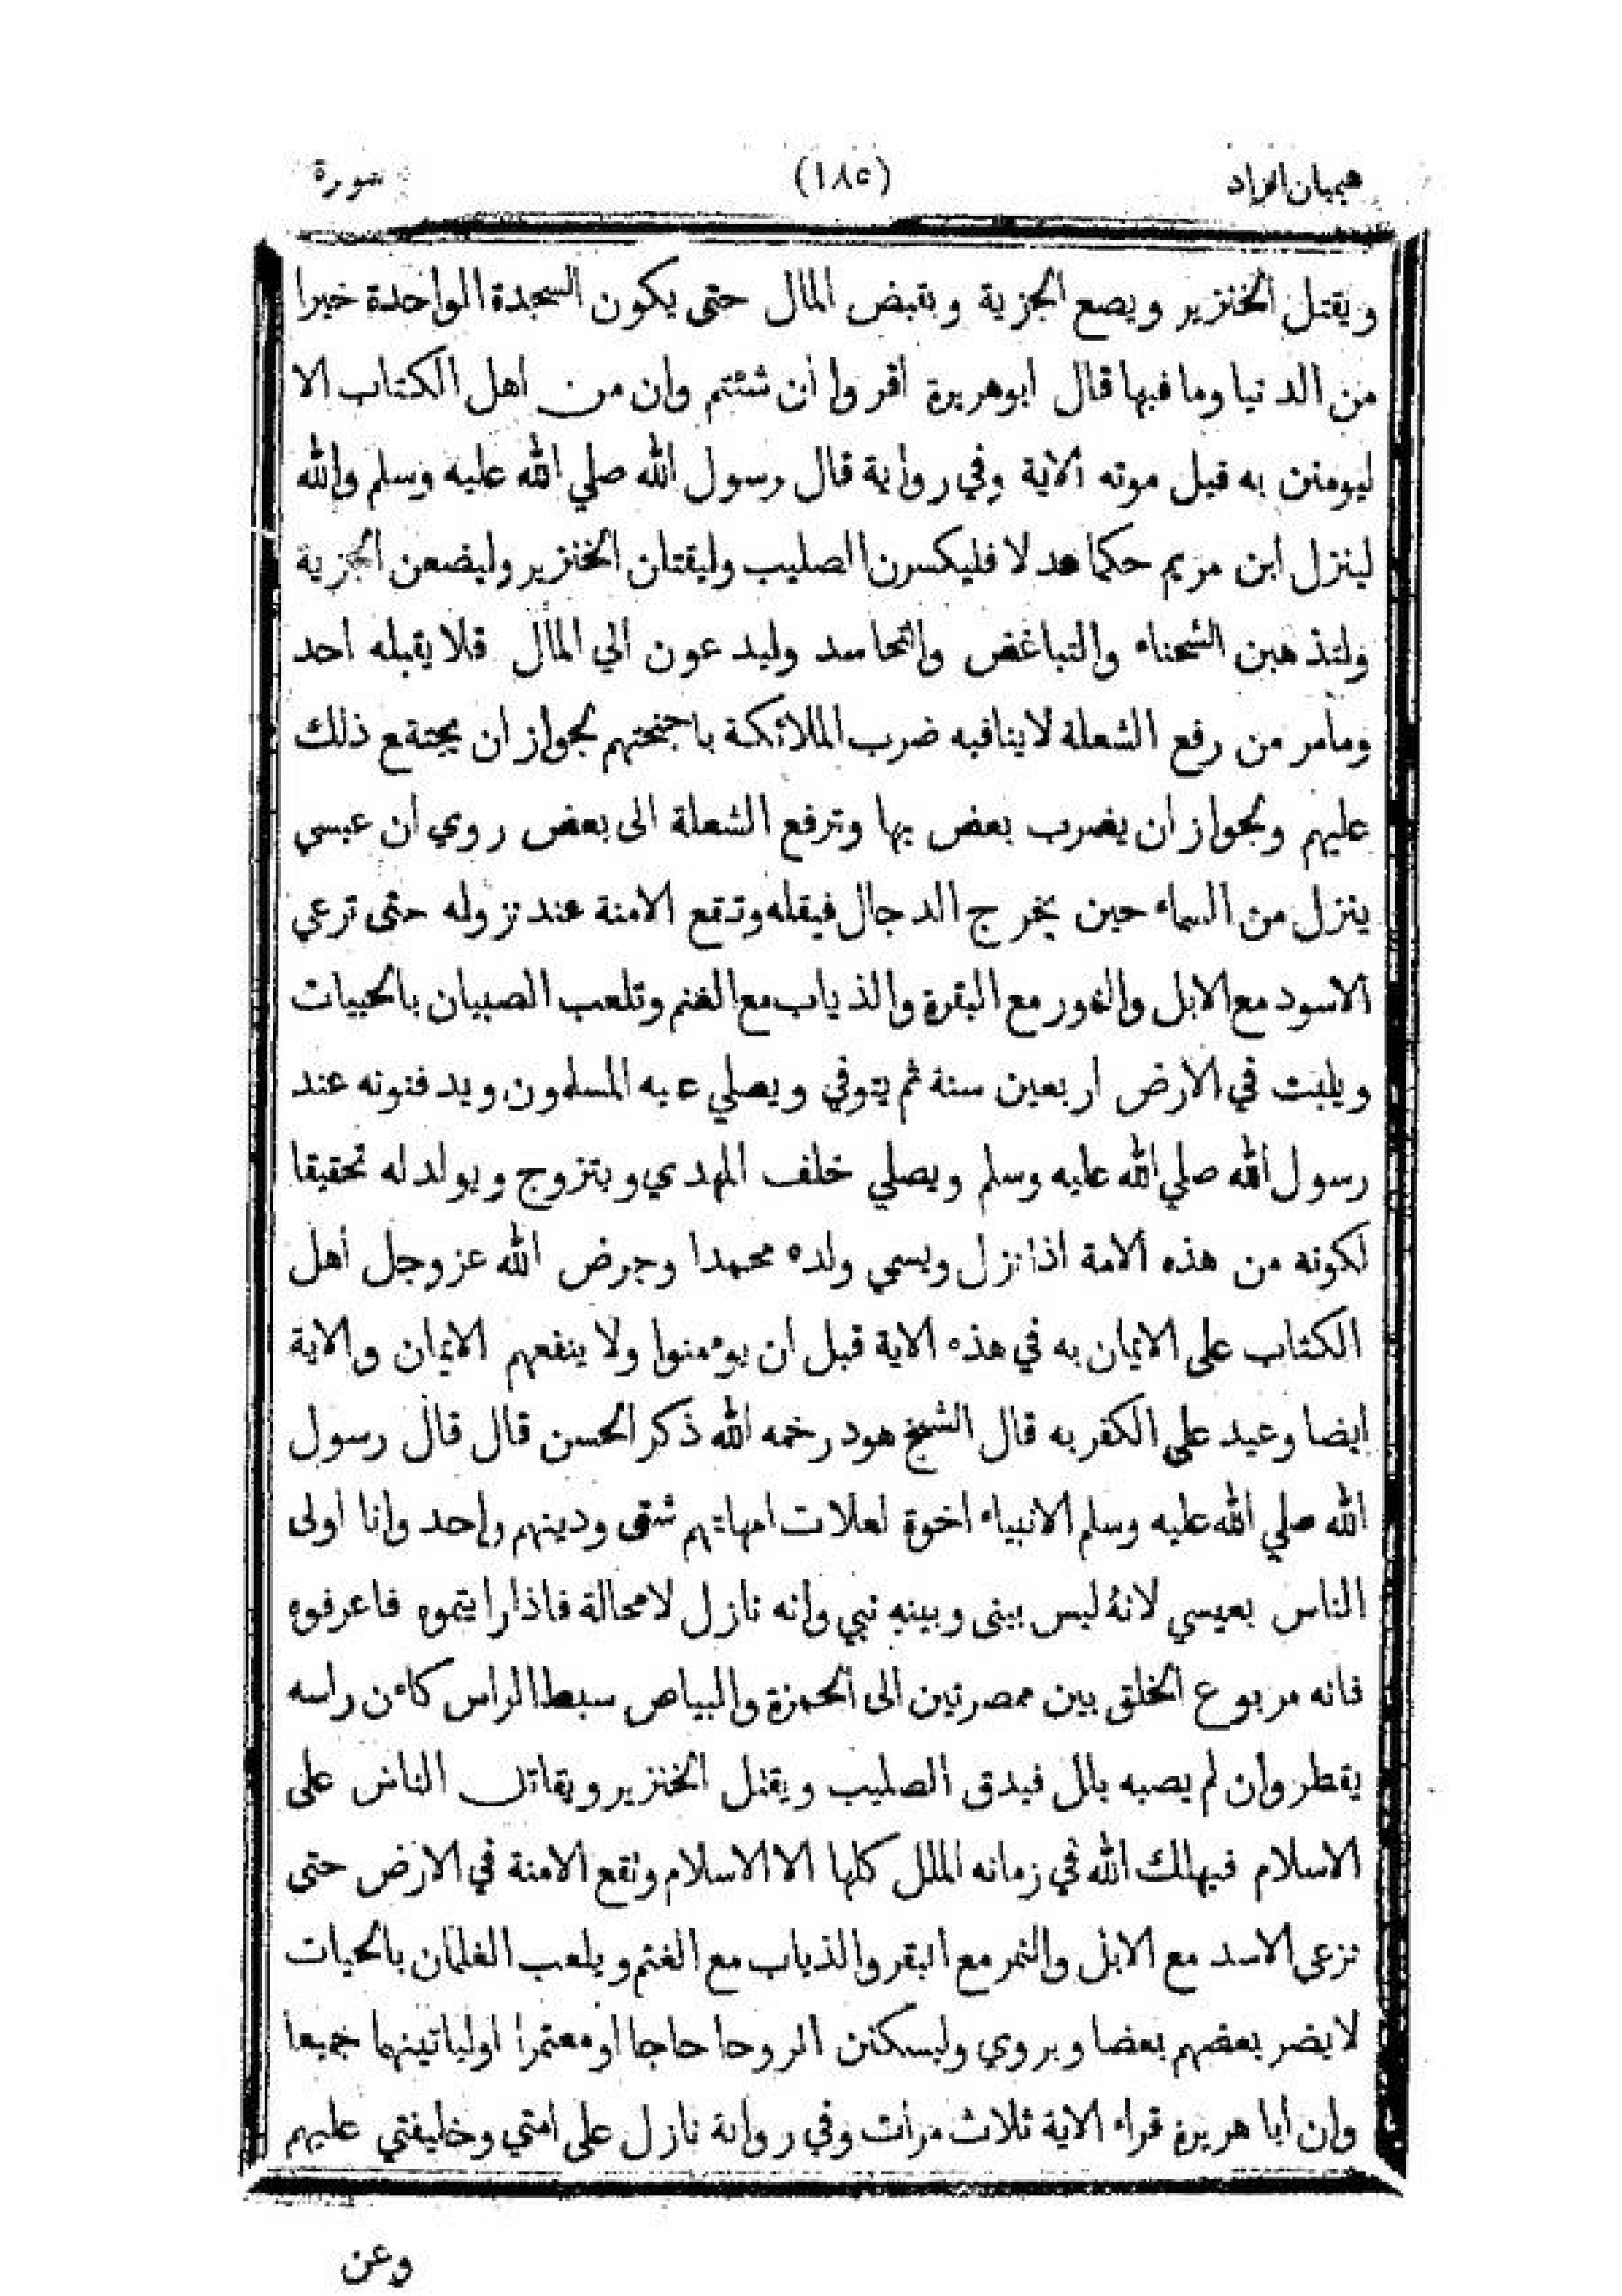 هيميان الزاد (١٨٥) سورة
ويقتل الخنزير ويصع الجزية وبقبض المال حتى يكون السجدة الواحدة خيرا
من الدنيا وما فيها قال ابوهريرة أقروا أن شئتم وان من اهل الكتاب الا
ليومنن به قبل موته الآية وفي رواية قال رسول الله صلي الله عليه وسلم والله
لينزل ابن مريم حكما عدلا فليكسرن الصليب وليقتلن الخنزير وليضعن الجزية
ولتذهبن الشحناء والتباغض والتحاسد وليدعون الي المال فلا يقبله احد
ومامر من رفع الشعلة لا ينافيه ضرب الملائكة باجنحتهم لجواز ان يجتمع ذلك
عليهم ولجواز ان يضرب بعض بها وترفع الشعلة الى بعض روي ان عيسي
ينزل من السماء حين يخرج الدجال فيقله وتقع الامنة عند نزوله حتى ترعي
الاسود مع الابل والنمور مع البقرة والذياب مع الغنم وتلعب الصبيان بالحييات
ويلبث في الارض اربعين سنة ثم يتوفي ويصلي عيه المسلمون ويدفنونه عند
رسول الله صلي الله عليه وسلم ويصلي خلف المهدي ويتزوج ويولد له تحقيقا
لكونه من هذه الامة اذا نزل ويسمي ولده محمدا وحرض الله عز وجل أهل
الكتاب على الايمان به في هذه الاية قبل ان يومنوا ولا ينفعهم الايمان والاية
ايضا وعيد على الكفر به قال الشيخ هود رحمه الله ذكر الحسن قال قال رسول
الله صلي الله عليه وسلم الانبياء اخوة لعلات امهاتهم شتى ودينهم واحد وانا اولى
الناس بعيسي لانه ليس بينى وبينه نبي وانه نازل لا محالة فاذا رايتموه فاعرفوه
فانه مربوع الخلق بين ممصرتين الى الحمرة والبياص سبط الراس كاءن راسه
يقطر وان لم يصبه بلل فيدق الصليب ويقتل الخنزير ويقاتل الناس على
الاسلام فيهلك الله في زمانه الملل كلها الا الاسلام وتقع الامنة في الارض حتى
ترعى الاسد مع الابل والنمر مع البقر والذياب مع الغنم ويلعب الغلمان بالحيات
لا يضر بعضهم بعضا ويروي وليسكنن الروحا حاجا او معتمرا اولياتينهما جميعا
وان ابا هريرة قراء الاية ثلاث مرات وفي رواية نازل على امتي وخليفتي عليهم
وعن